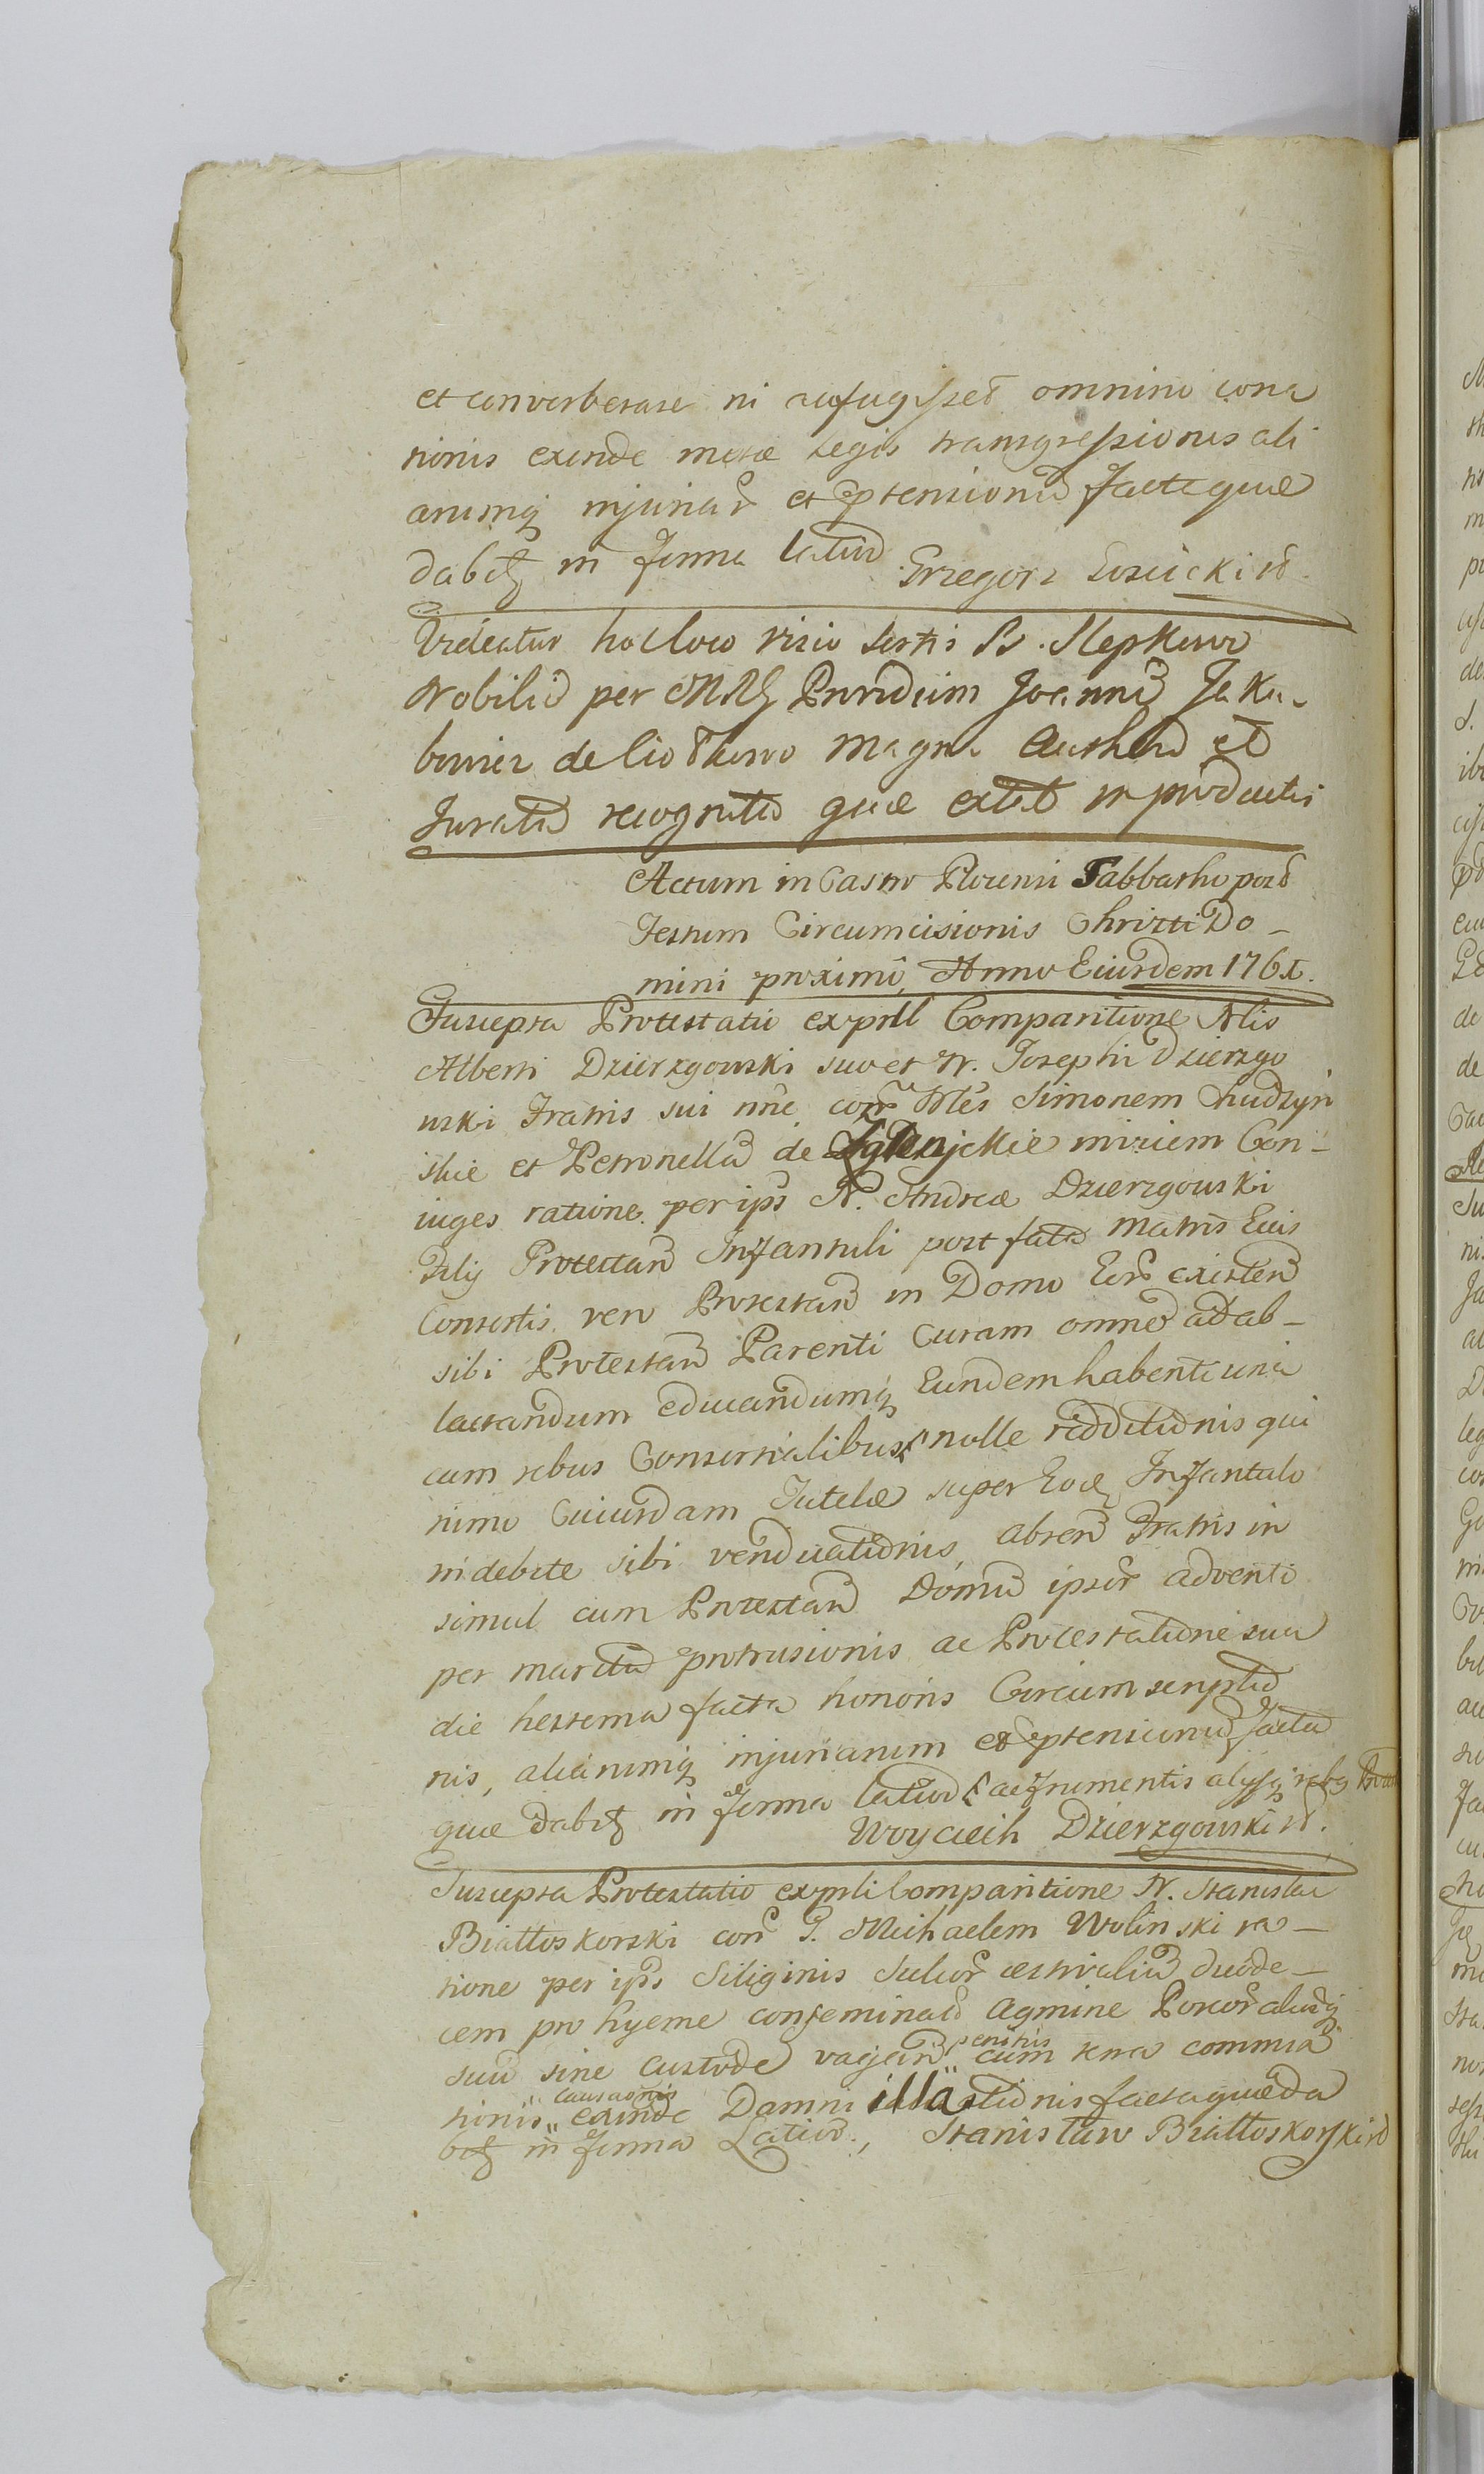 et converberare ni aufugisset omnino cona
tionis exinde metæ legis transgressionis ali
arumq injuriar et prtensionu facte quæ
dabit in forma latiori Grzegorz Łosicki
Videatur hoc loco visio sortis B. Slepkowo
Nobiliu per Providum Joannem Jaku-
bowicz de Ciołkowo Magna Author et
Juratu recognita quæ extat in productis
Actum in Castro Plocensi Sabbatho post
Festum Circumcisionis Christi Do-
mini proximo, Anno Eiusdem 176
Suscepta Protestatio ex prsli Comparitione Nlis
Alberti Dzierzgowski suo et N. Josephi Dzierzgo
wski Fratris sui nne, con Nles Simonem Chudzyn
skie et Petronella de miziem Con-
iuges ratione per ips N. Andreæ Dzierzgowski
Filij Protestan Infantuli post fata Matris Eius
Consortis vero Protestan in Domo Eor existen
sibi Protestan Parenti Curam omne ad ab-
lactandum educandumq Eundem habenti una
cum rebus Consortialibus nolle redditionis qui
nimo Cuiusdam Tutelæ super Eod Infantulo
indebite sibi vendicationis, absen Fratris in
simul cum Protestan Domu ipsor adventi
per maritu protrusionis ac Protestatione sua
die hesterna facta honoris Circumscriptio
nis, aliarumq injuriarum et prtensionu facta
quæ dabit in forma latiori ac frumentis alijsq rebg
Woyciech Dzierzgowski
Suscepta Protestatio ex prsli Comparitione N. Stanislai
Białłoskorski con G. Michaelem Wolinski ra-
tione per ips Siliginis Sulcor æstivaliu duode-
cem pro hyeme conseminat Agmine Porcor aliudq
suu sine custode vagan penitus cum scro commia
tionis causaonis exinde Damni illationis facta quæ da
bit in forma Latiori, Stanisław Białłoskorski